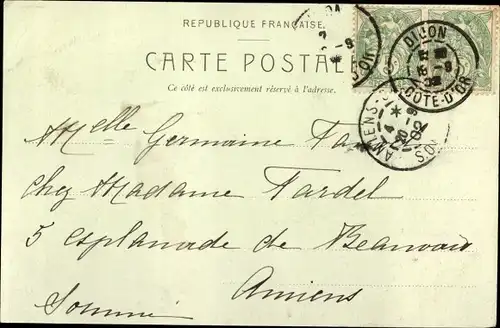 RÉPUBLIQUE FRANÇAISE
CARTE POSTALE
Ce côté est exclusivement réservé à l'adresse.
DIJON
COTE-D'OR
AMIENS
Melle Germaine
chez Madame Tardel
5 esplanade de Beauvais
Amiens
Somme